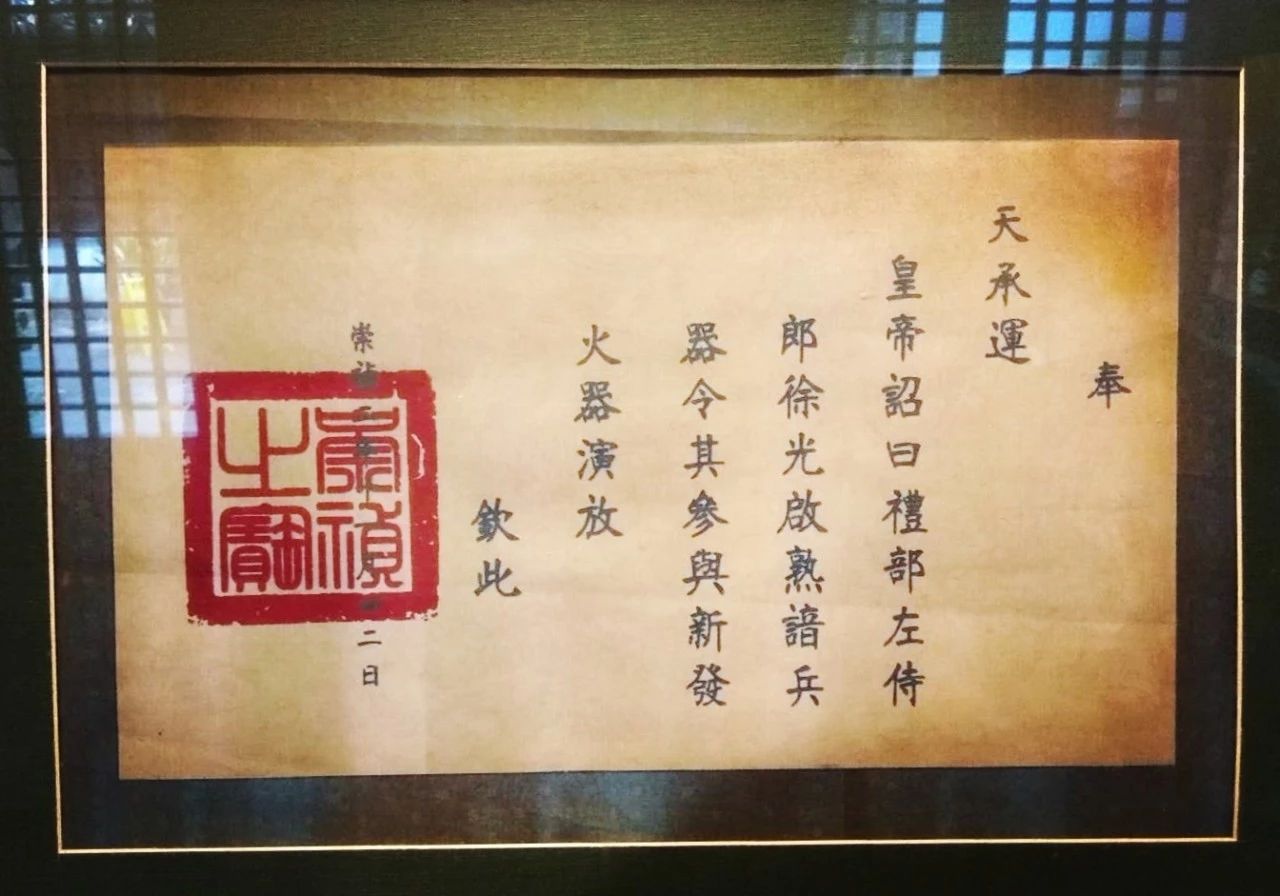 奉
天承運
皇帝詔曰禮部左侍
郎徐光啟熟諳兵
器令其參與新發
火器演放
欽此
崇禎二日
崇禎之寶